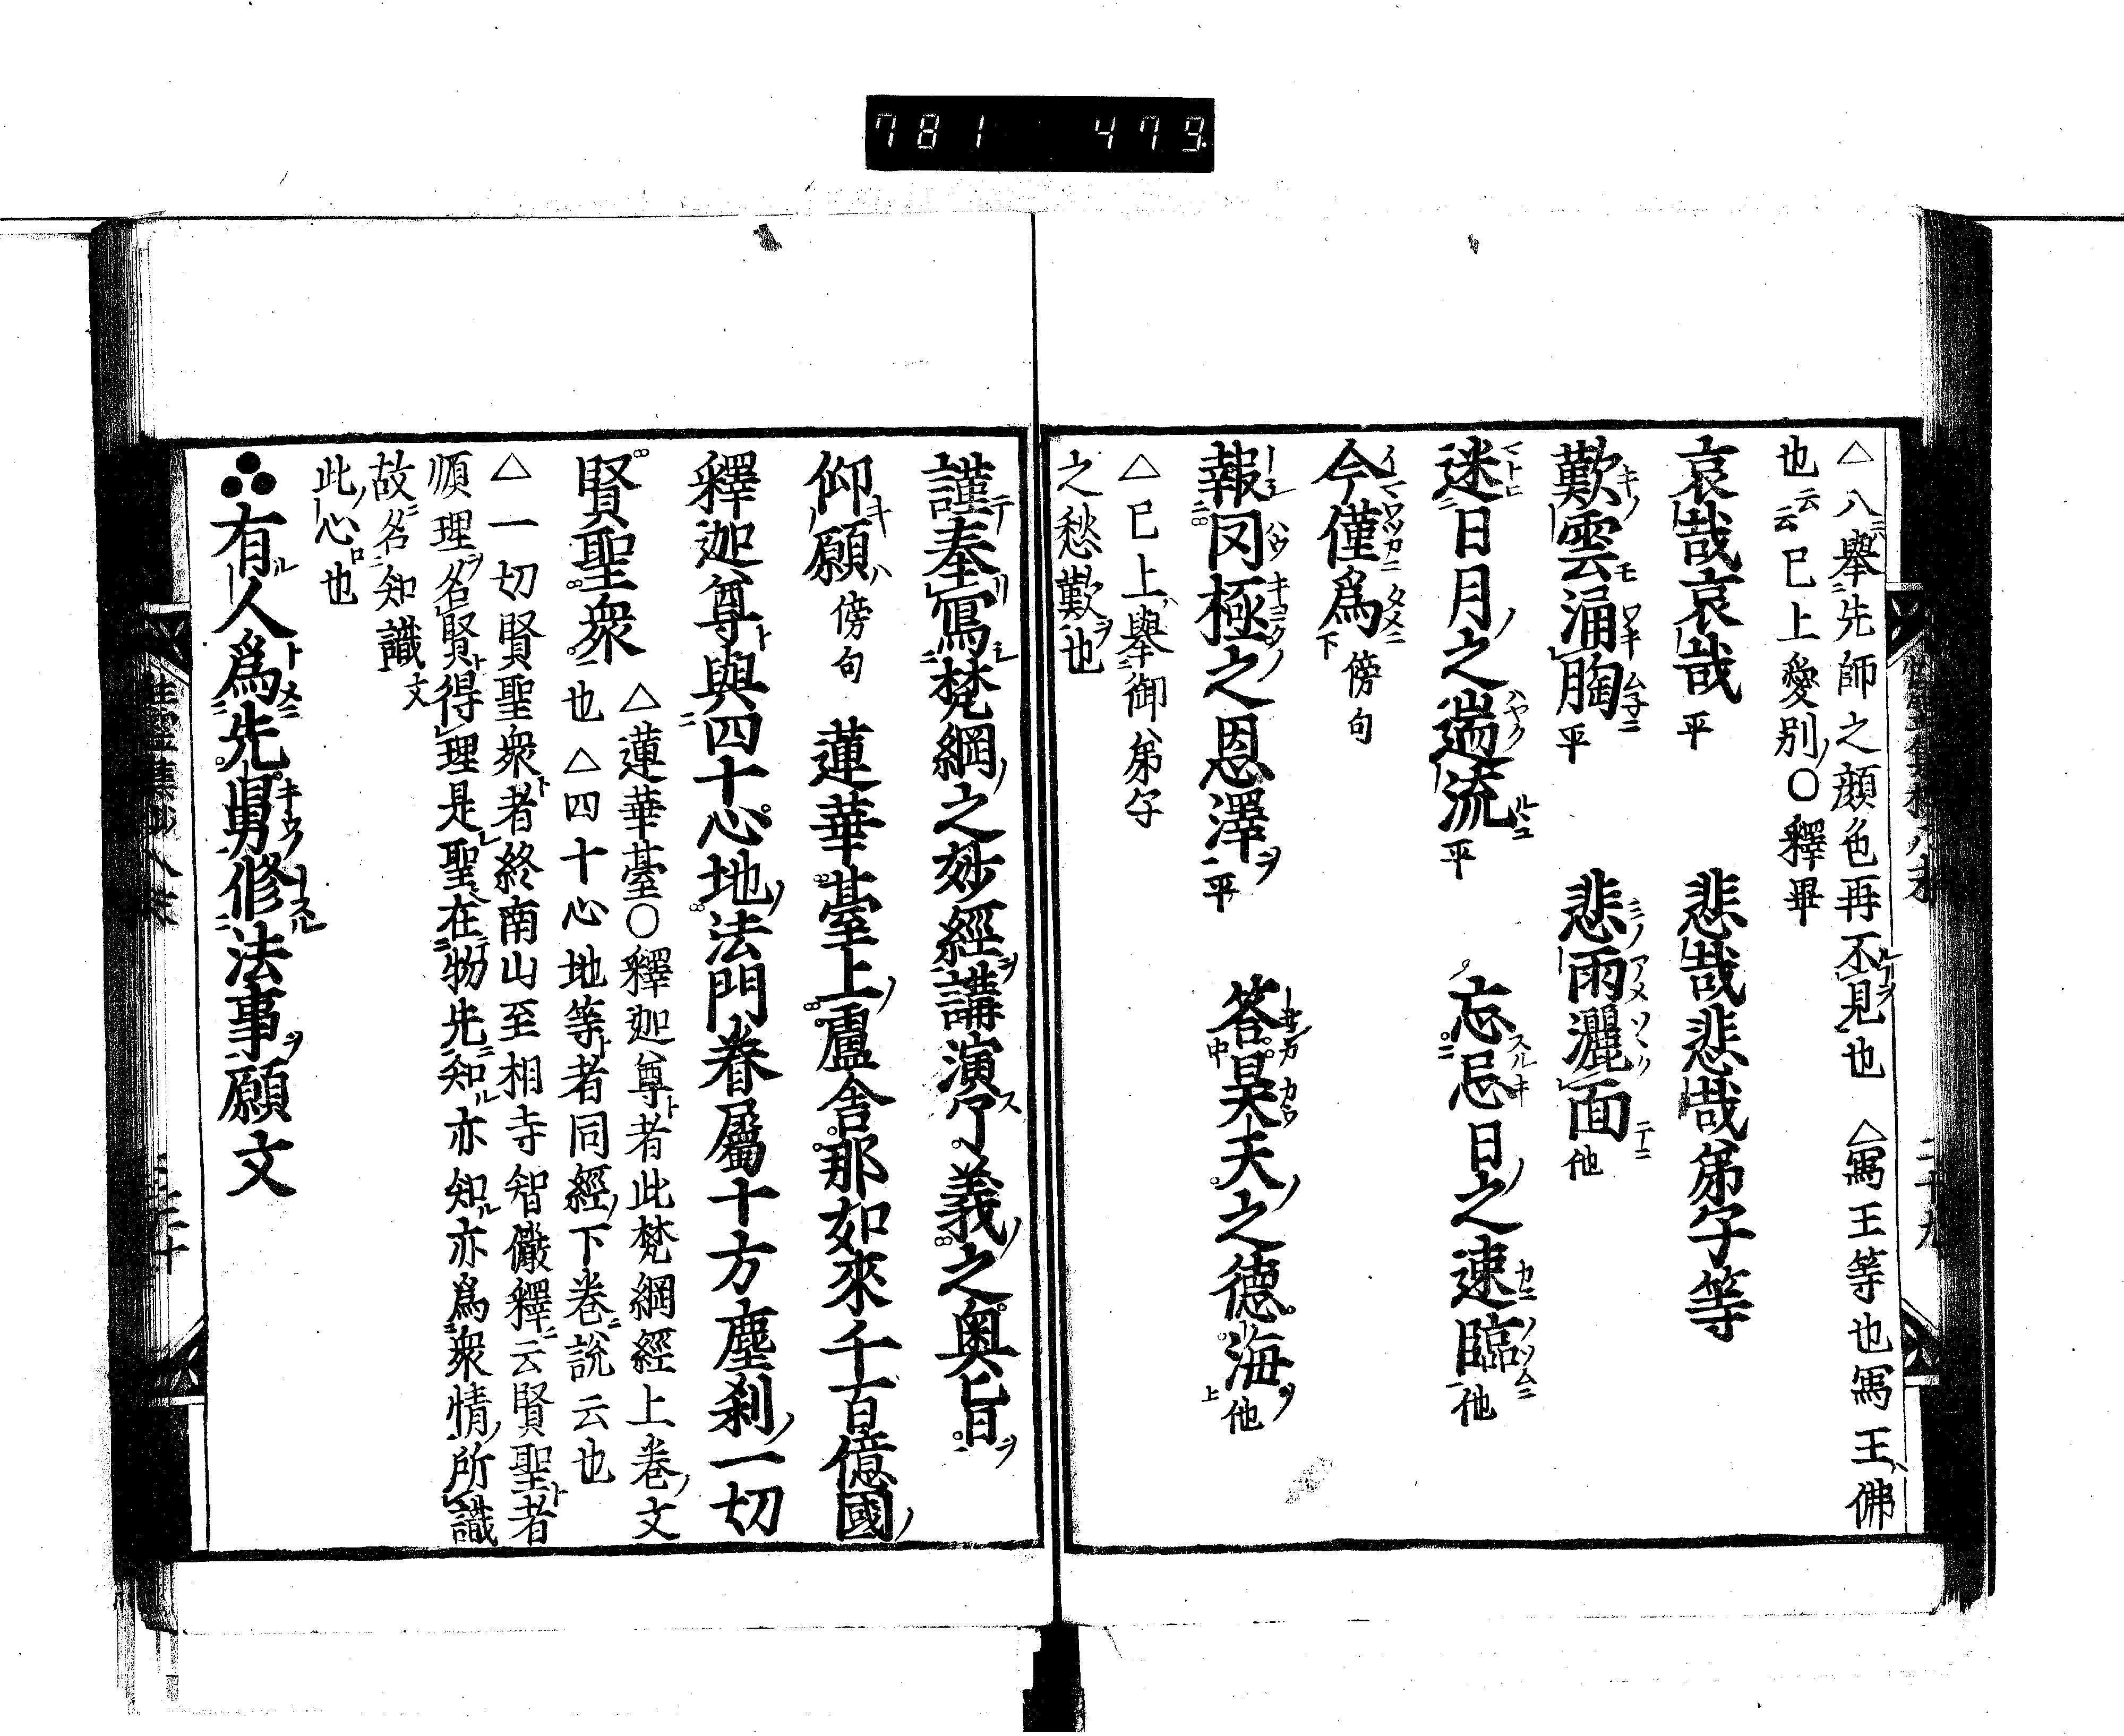 781 479.
△八擧先師之顔色再不見也 △寫王等也寫王佛
也云云已上愛別○釋畢
哀哉哀哉平 悲哉悲哉弟子等
歎雲涌胸平 悲雨灑面他
迷日月之遄流平 忘忌日之速臨他
今僅爲下傍句
報罔極之恩澤平 答昊天之德海他
△已上擧御弟子
之愁歎也
謹奉寫梵網之妙經講演了義之奥旨
仰願傍句 蓮華臺上盧舍那如來千百億國
釋迦尊與四十心地法門眷屬十方塵刹一切
賢聖衆 △蓮華臺○釋迦尊者此梵網經上卷文
也△四十心地等者同經下卷説云也
△一切賢聖衆者終南山至相寺智儼釋云賢聖者
順理名賢得理是聖在物先知亦知亦爲衆情所識
故名知識文
此心也
有人爲先舅修法事願文